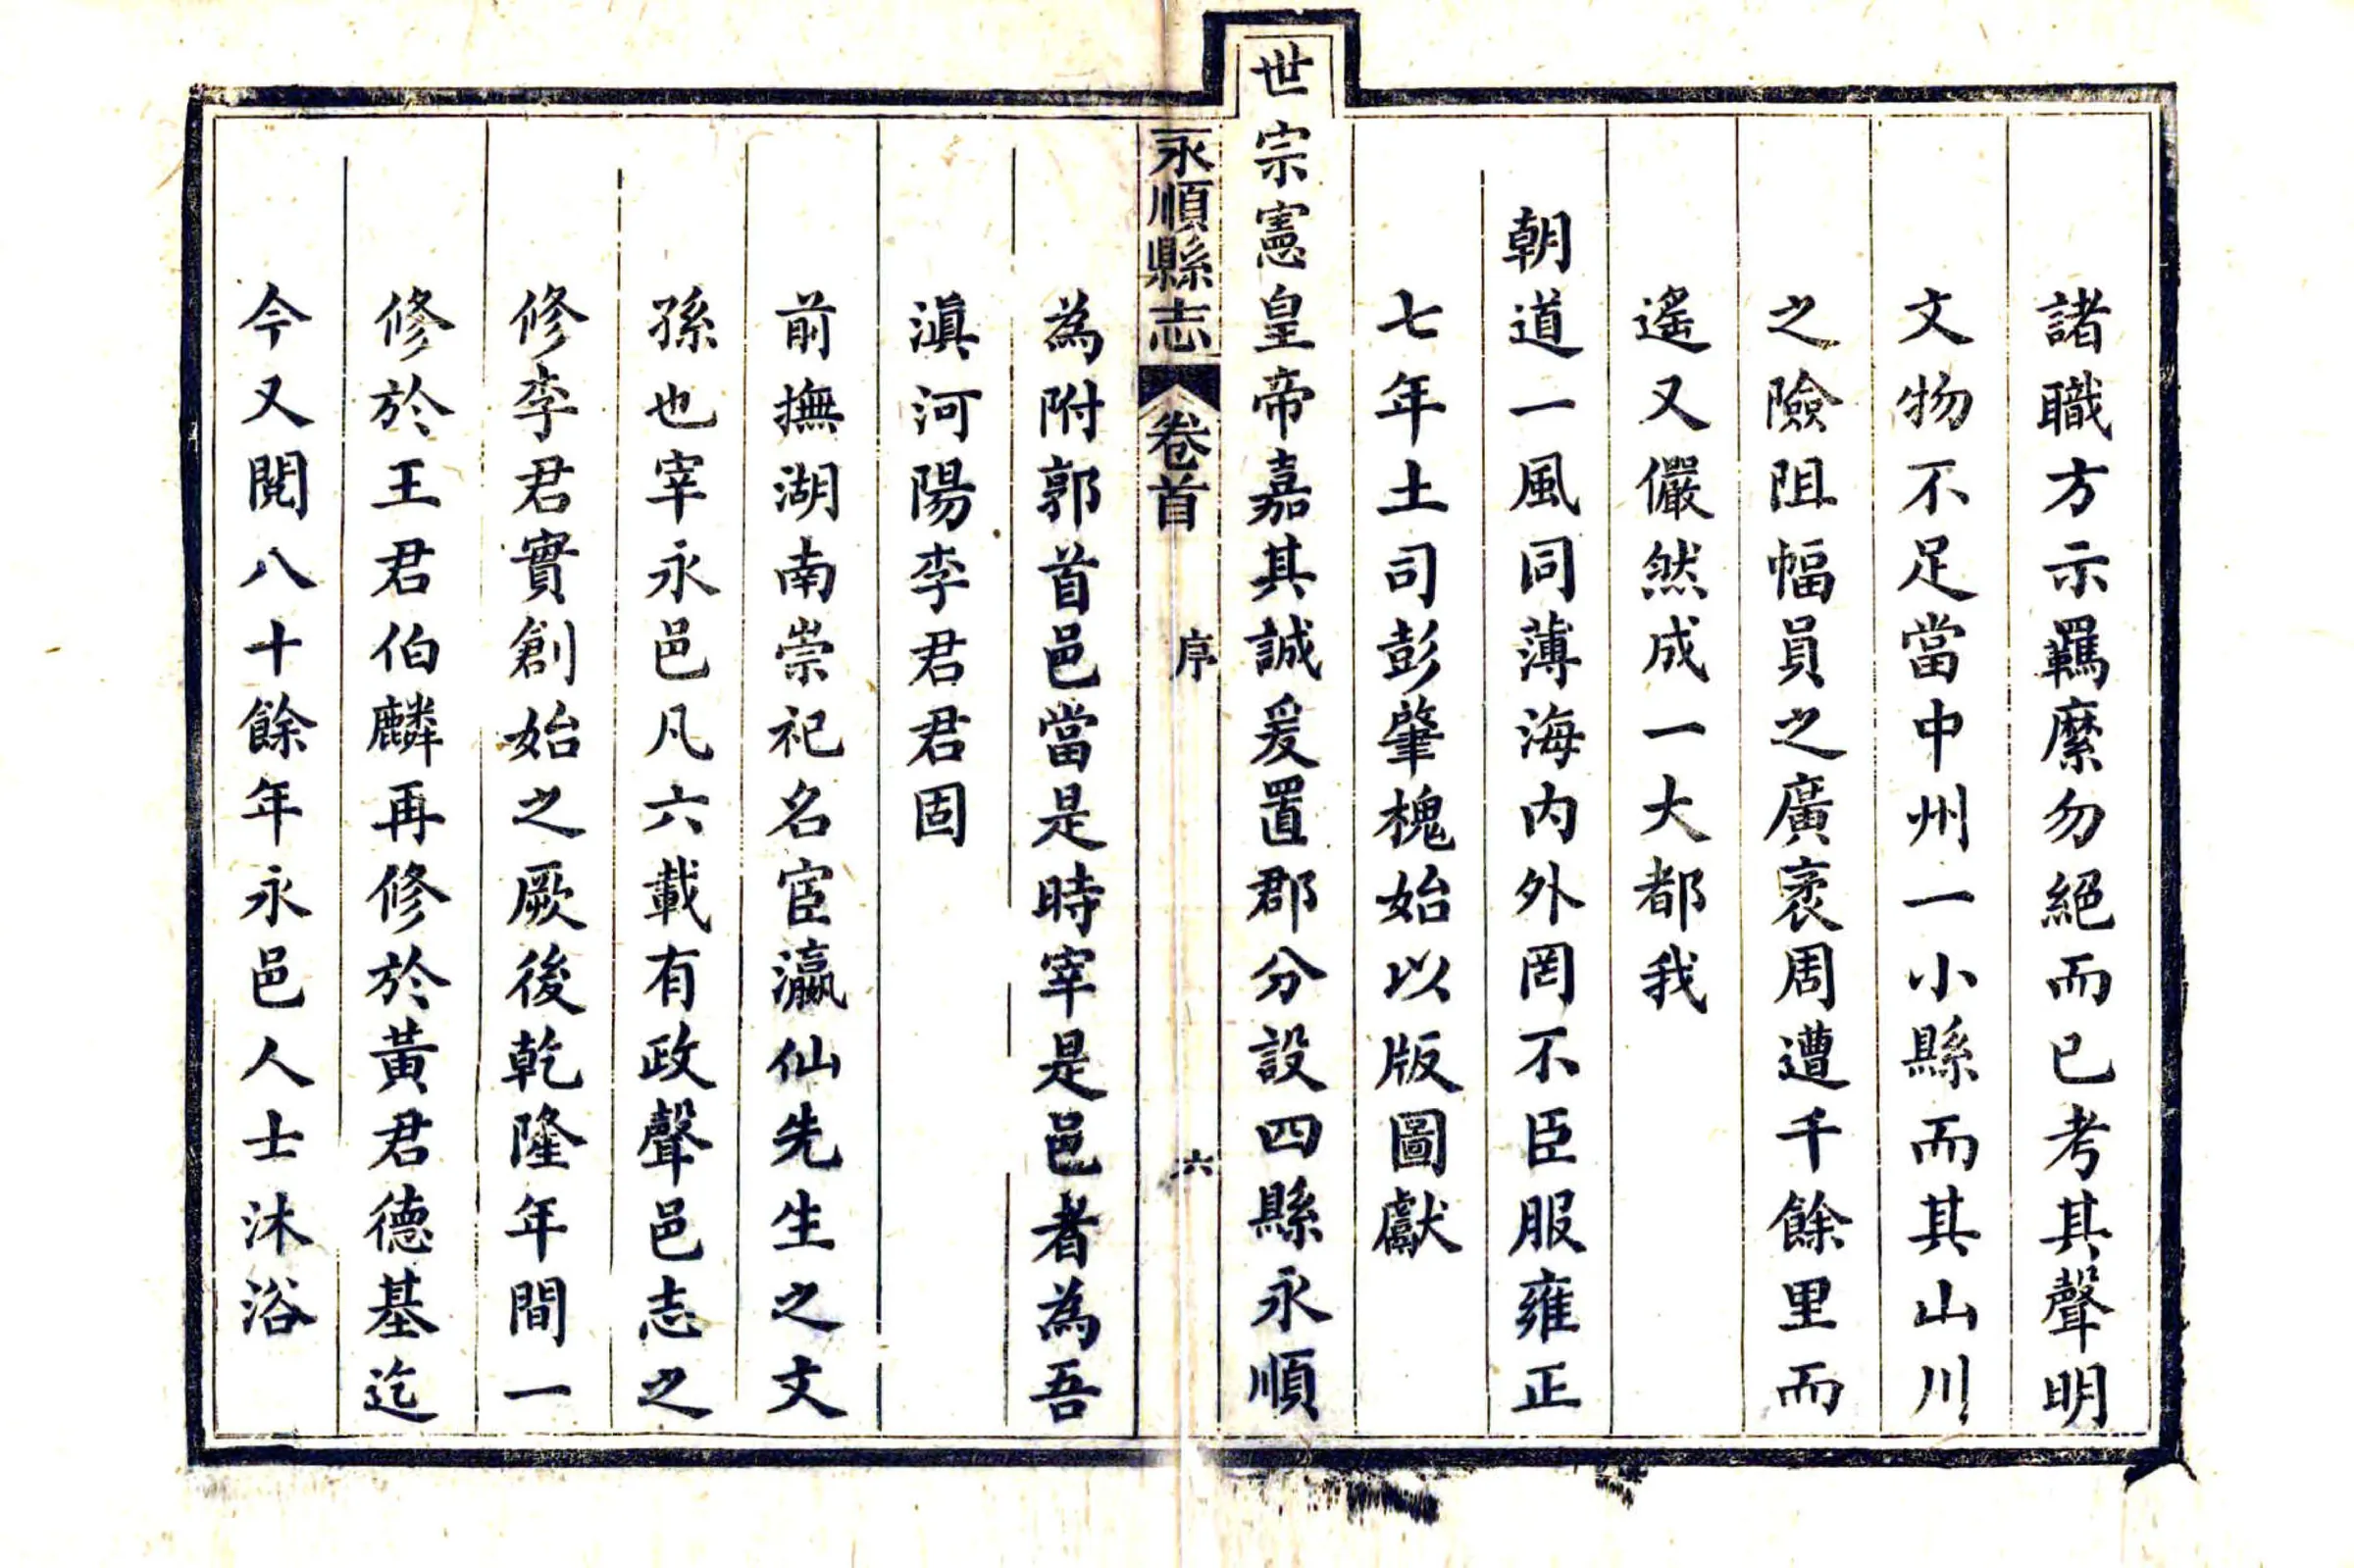 諸職方示羈縻勿絕而已考其聲明
文物不足當中州一小縣而其山川
之險阻幅員之廣袤周遭千餘里而
遙又儼然成一大都我
朝道一風同薄海內外罔不臣服雍正
七年土司彭肇槐始以版圖獻
世宗憲皇帝嘉其誠爰置郡分設四縣永順
永順縣志 卷首 序 六
為附郭首邑當是時宰是邑者為吾
滇河陽李君君固
前撫湖南崇祀名宦瀛仙先生之文
孫也宰永邑凡六載有政聲邑志之
修李君實創始之厥後乾隆年間一
修於王君伯麟再修於黃君德基迄
今又閱八十餘年永邑人士沐浴